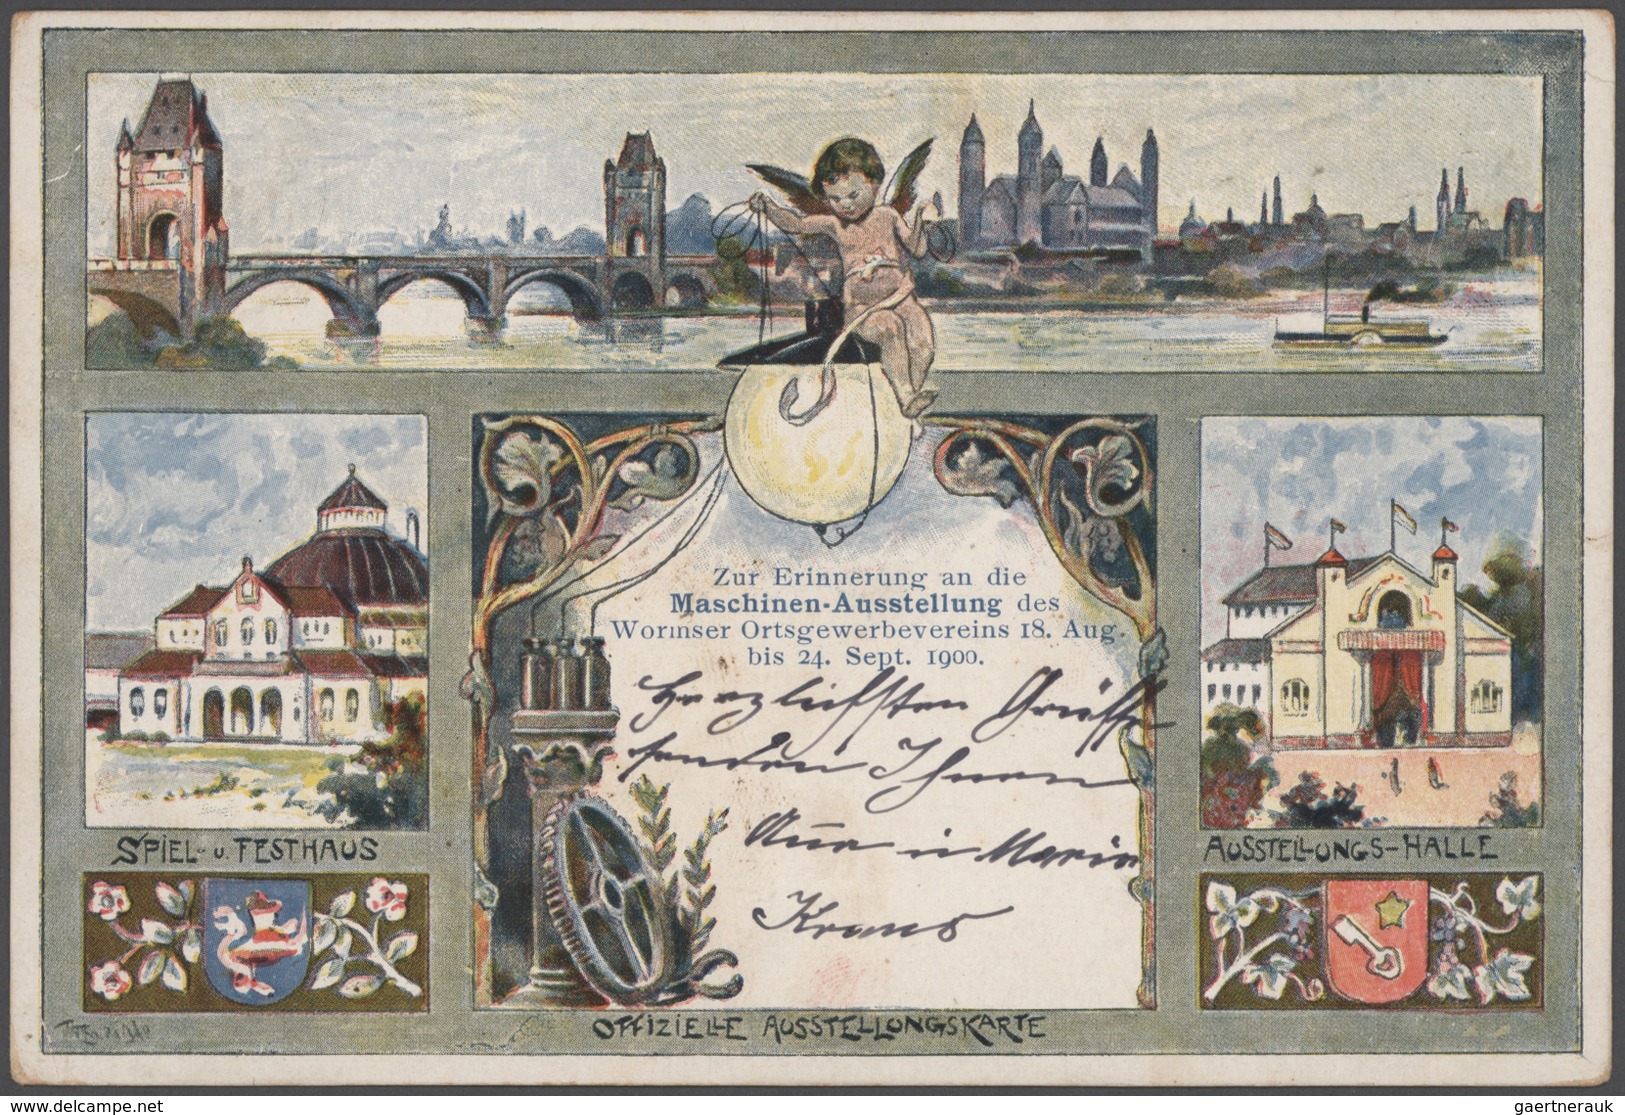 Zur Erinnerung an die
Maschinen-Ausstellung des
Wormser Ortsgewerbevereins 18. Aug.
bis 24. Sept. 1900.
Herzlichsten Grüsse
senden Ihnen
u Marie
Kraus
SPIEL- u. FESTHAUS
AUSSTELLUNGS-HALLE
OFFIZIELLE AUSSTELLUNGSKARTE
www.delcampe.net
gaertnerauk